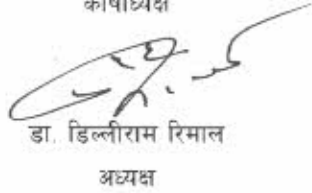 कोषाध्यक्ष
डा. डिल्लीराम रिमाल
अध्यक्ष